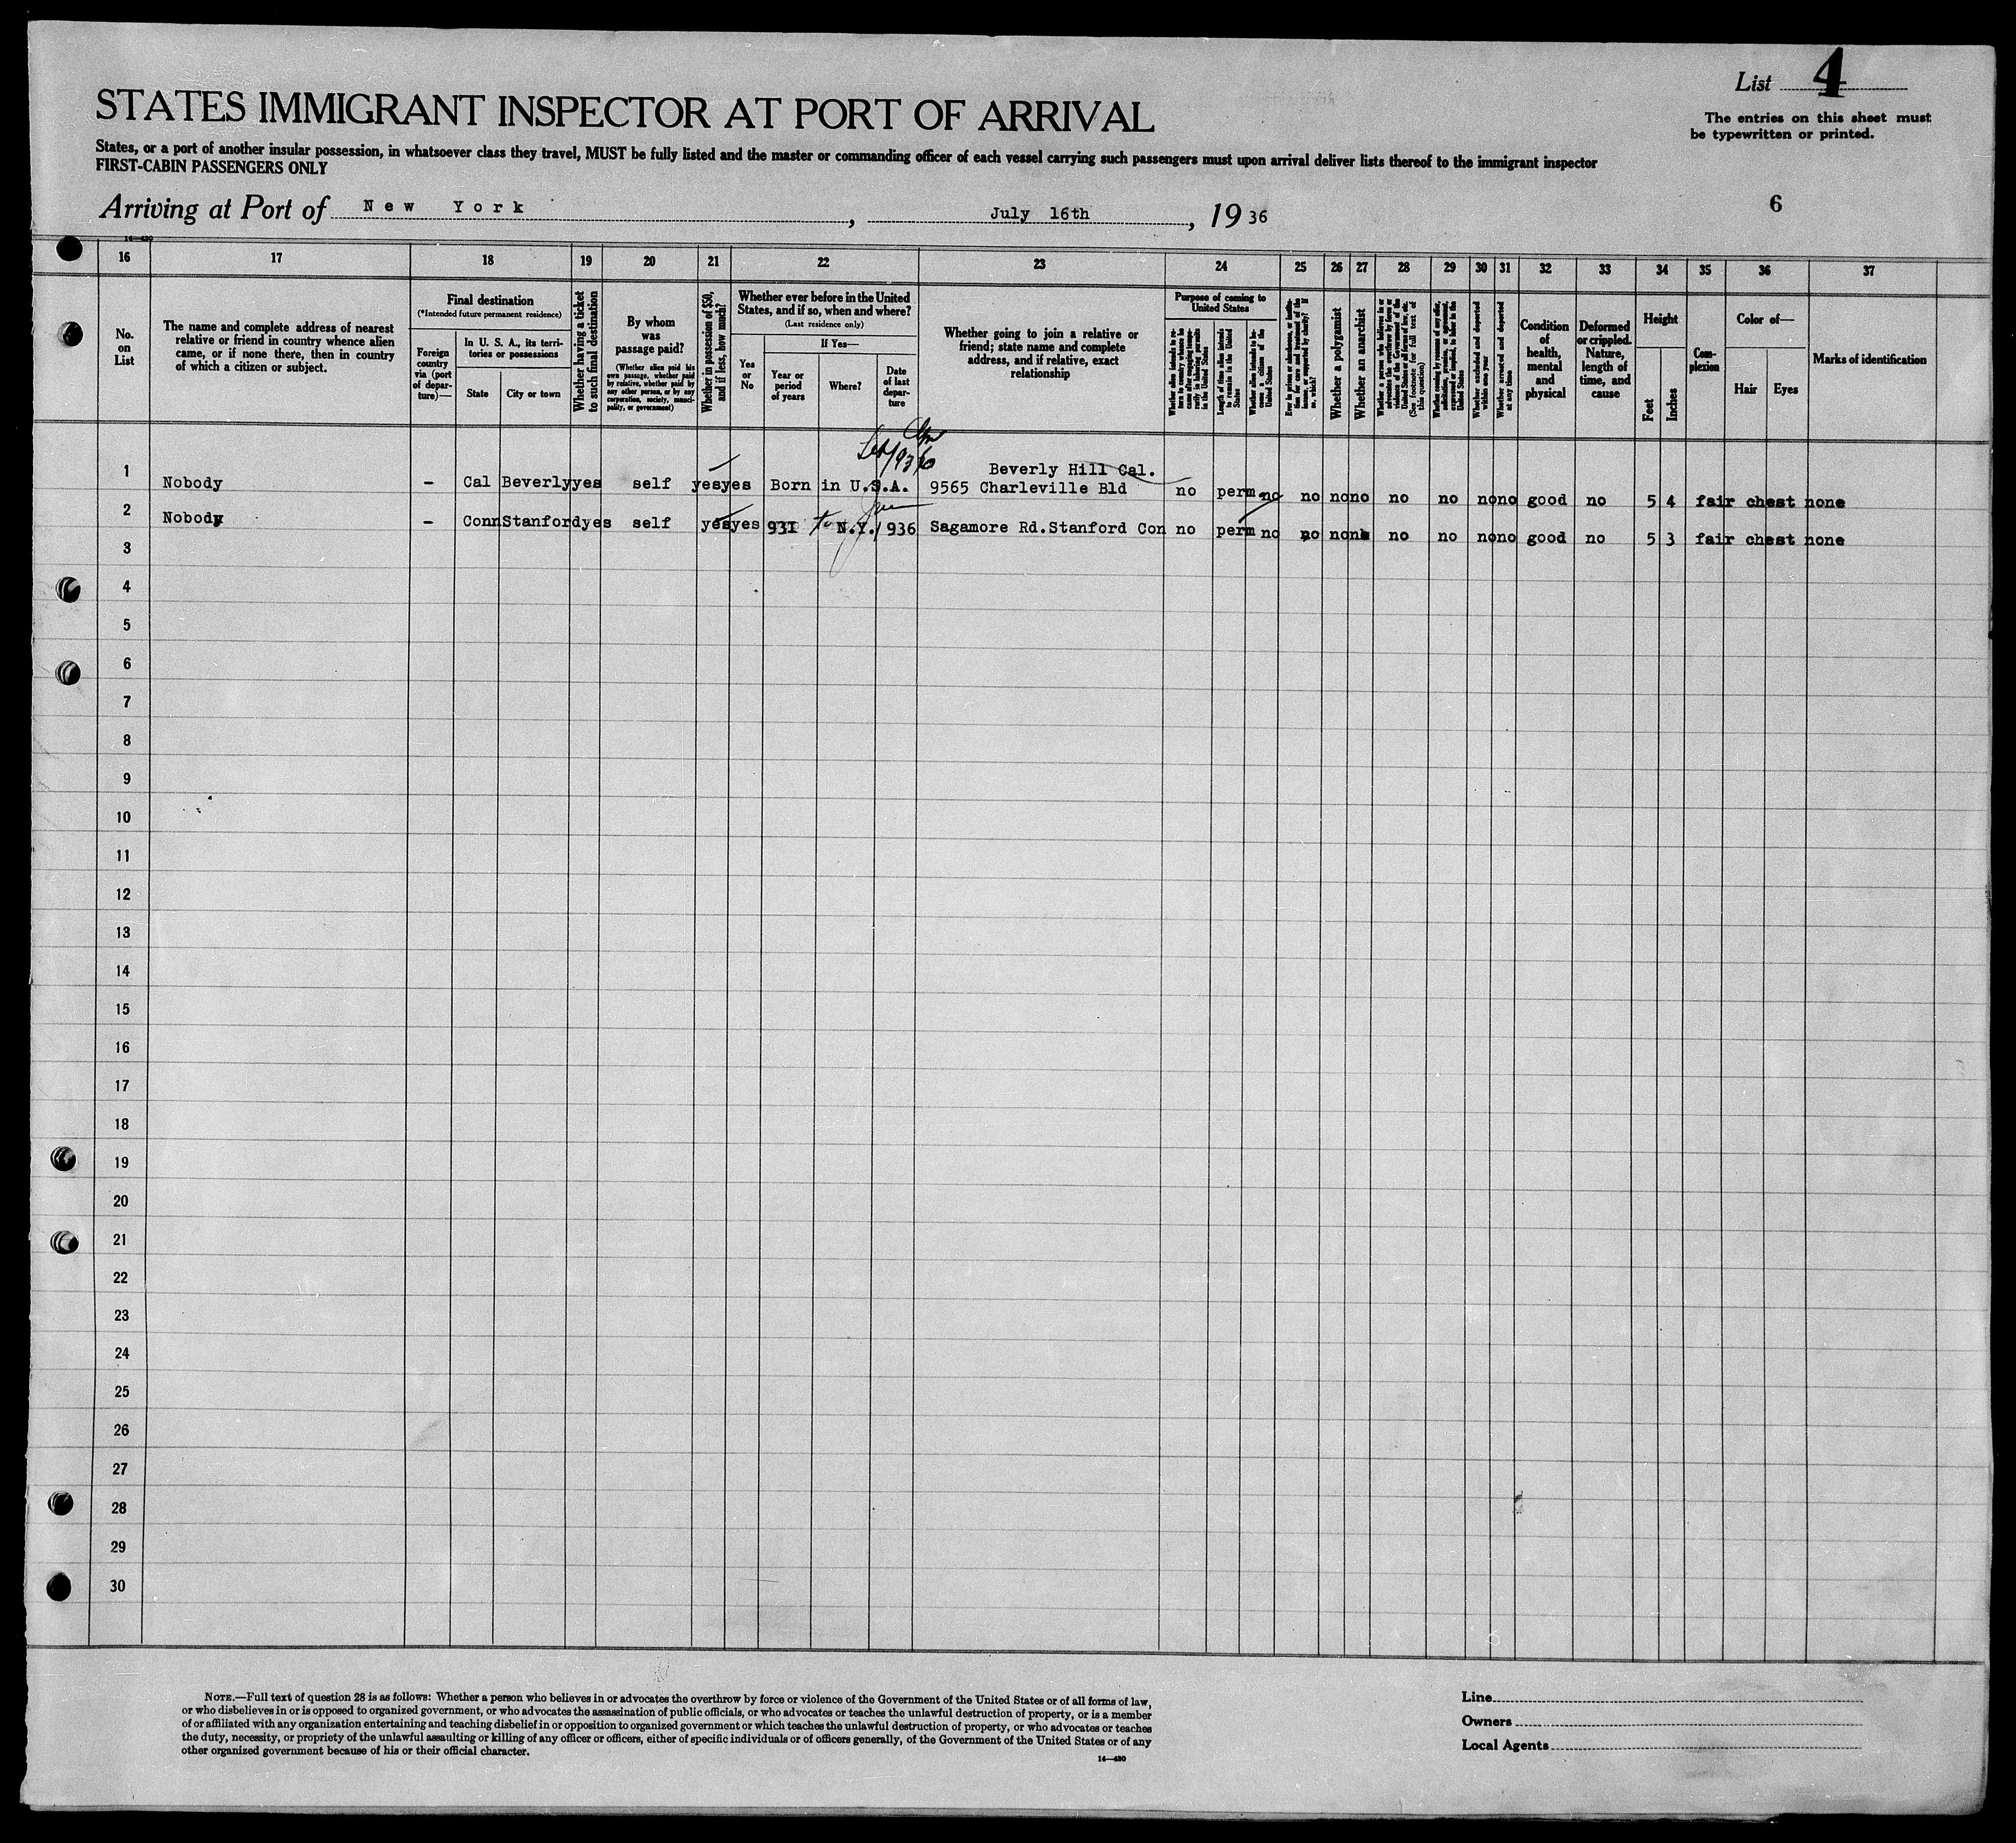 List 4
The entries on this sheet must
be typewritten or printed.
STATES IMMIGRANT INSPECTOR AT PORT OF ARRIVAL
States, or a port of another insular possession, in whatsoever class they travel, MUST be fully listed and the master or commanding officer of each vessel carrying such passengers must upon arrival deliver lists thereof to the immigrant inspector
FIRST-CABIN PASSENGERS ONLY
Arriving at Port of New York, July 16th, 19 36
6
14—430
16 17 18 19 20 21 22 23 24 25 26 27 28 29 30 31 32 33 34 35 36 37
No.
on
List
The name and complete address of nearest
relative or friend in country whence alien
came, or if none there, then in country
of which a citizen or subject.
Final destination
(*Intended future permanent residence)
Foreign
country
via (port
of depar-
ture)—
In U. S. A., its terri-
tories or possessions
State
City or town
Whether having a ticket
to such final destination
By whom
was
passage paid?
(Whether alien paid his
own passage, whether paid
by relative, whether paid by
any other person, or by any
corporation, society, munici-
pality, or government)
Whether in possession of $50,
and if less, how much?
Whether ever before in the United
States, and if so, when and where?
(Last residence only)
Yes
or
No
If Yes—
Year or
period
of years
Where?
Date
of last
depar-
ture
Whether going to join a relative or
friend; state name and complete
address, and if relative, exact
relationship
Purpose of coming to
United States
Whether alien intends to re-
turn to country whence he
came after engaging tempo-
rarily in laboring pursuits
in the United States
Length of time alien intends
to remain in the United
States
Whether alien intends to be-
come a citizen of the
United States
Ever in prison or almshouse, or institu-
tion for care and treatment of the
insane, or supported by charity? If
so, which?
Whether a polygamist
Whether an anarchist
Whether a person who believes in or
advocates the overthrow by force or
violence of the Government of the
United States or all forms of law, etc.
(See footnote for full text of
this question)
Whether coming by reason of any offer,
solicitation, promise, or agreement,
expressed or implied, to labor in the
United States
Whether excluded and deported
within one year
Whether arrested and deported
at any time
Condition
of
health,
mental
and
physical
Deformed
or crippled.
Nature,
length of
time, and
cause
Height
Feet
Inches
Com-
plexion
Color of—
Hair
Eyes
Marks of identification
Beverly Hill Cal.
1 Nobody – Cal Beverly yes self yes yes Born in U.S.A. 9565 Charleville Bld no perm. no no no no no no no no good no 5 4 fair chest none
2 Nobody – Conn Stanford yes self yes yes 931 to N.Y. 1936 Sagamore Rd. Stanford Con no perm no no no no no no no no good no 5 3 fair chest none
3
4
5
6
7
8
9
10
11
12
13
14
15
16
17
18
19
20
21
22
23
24
25
26
27
28
29
30
NOTE.—Full text of question 28 is as follows: Whether a person who believes in or advocates the overthrow by force or violence of the Government of the United States or of all forms of law,
or who disbelieves in or is opposed to organized government, or who advocates the assassination of public officials, or who advocates or teaches the unlawful destruction of property, or is a member
of or affiliated with any organization entertaining and teaching disbelief in or opposition to organized government or which teaches the unlawful destruction of property, or who advocates or teaches
the duty, necessity, or propriety of the unlawful assaulting or killing of any officer or officers, either of specific individuals or of officers generally, of the Government of the United States or of any
other organized government because of his or their official character.
14—430
Line
Owners
Local Agents